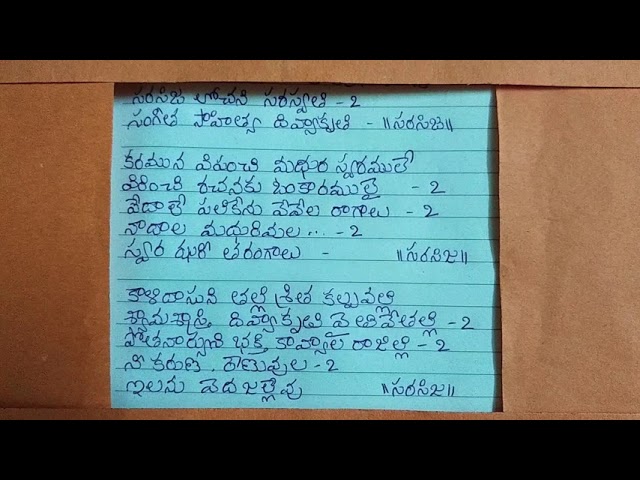 సరసిజ లోచని సరస్వతి - 2
సంగీత సాహిత్య దివ్యాకృతి - ॥సరసిజ॥
కరమున విపంచి మధుర స్వరములే
విరించి రచనకు ఓంకారములై - 2
వేదాలే పలికేను వేవేల రాగాలు - 2
నాదాల మధురిమల... - 2
స్వర ఝరీ తరంగాలు - ॥సరసిజ॥
కాళిదాసుని తల్లి శ్రిత కల్పవల్లి
శ్యామశాస్త్రి దివ్యాకృతివై తివే తల్లి - 2
పోతనార్యుని భక్తి కావ్యాల రాజిల్లి - 2
నీ కరుణ రేణువుల - 2
ఇలను వెదజల్లేవు ॥సరసిజ॥